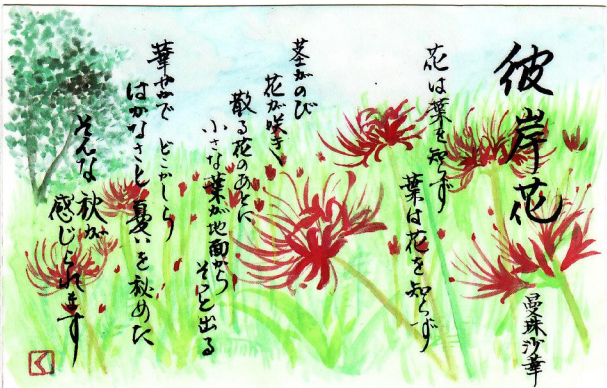 彼岸花
曼珠沙華
花は葉を知らず
葉は花を知らず
茎がのび
花が咲き
散る花のあとに
小さな葉が地面から
そっと出る
華やかで どこかしら
はかなさと憂いを秘めた
そんな秋が
感じられます
く